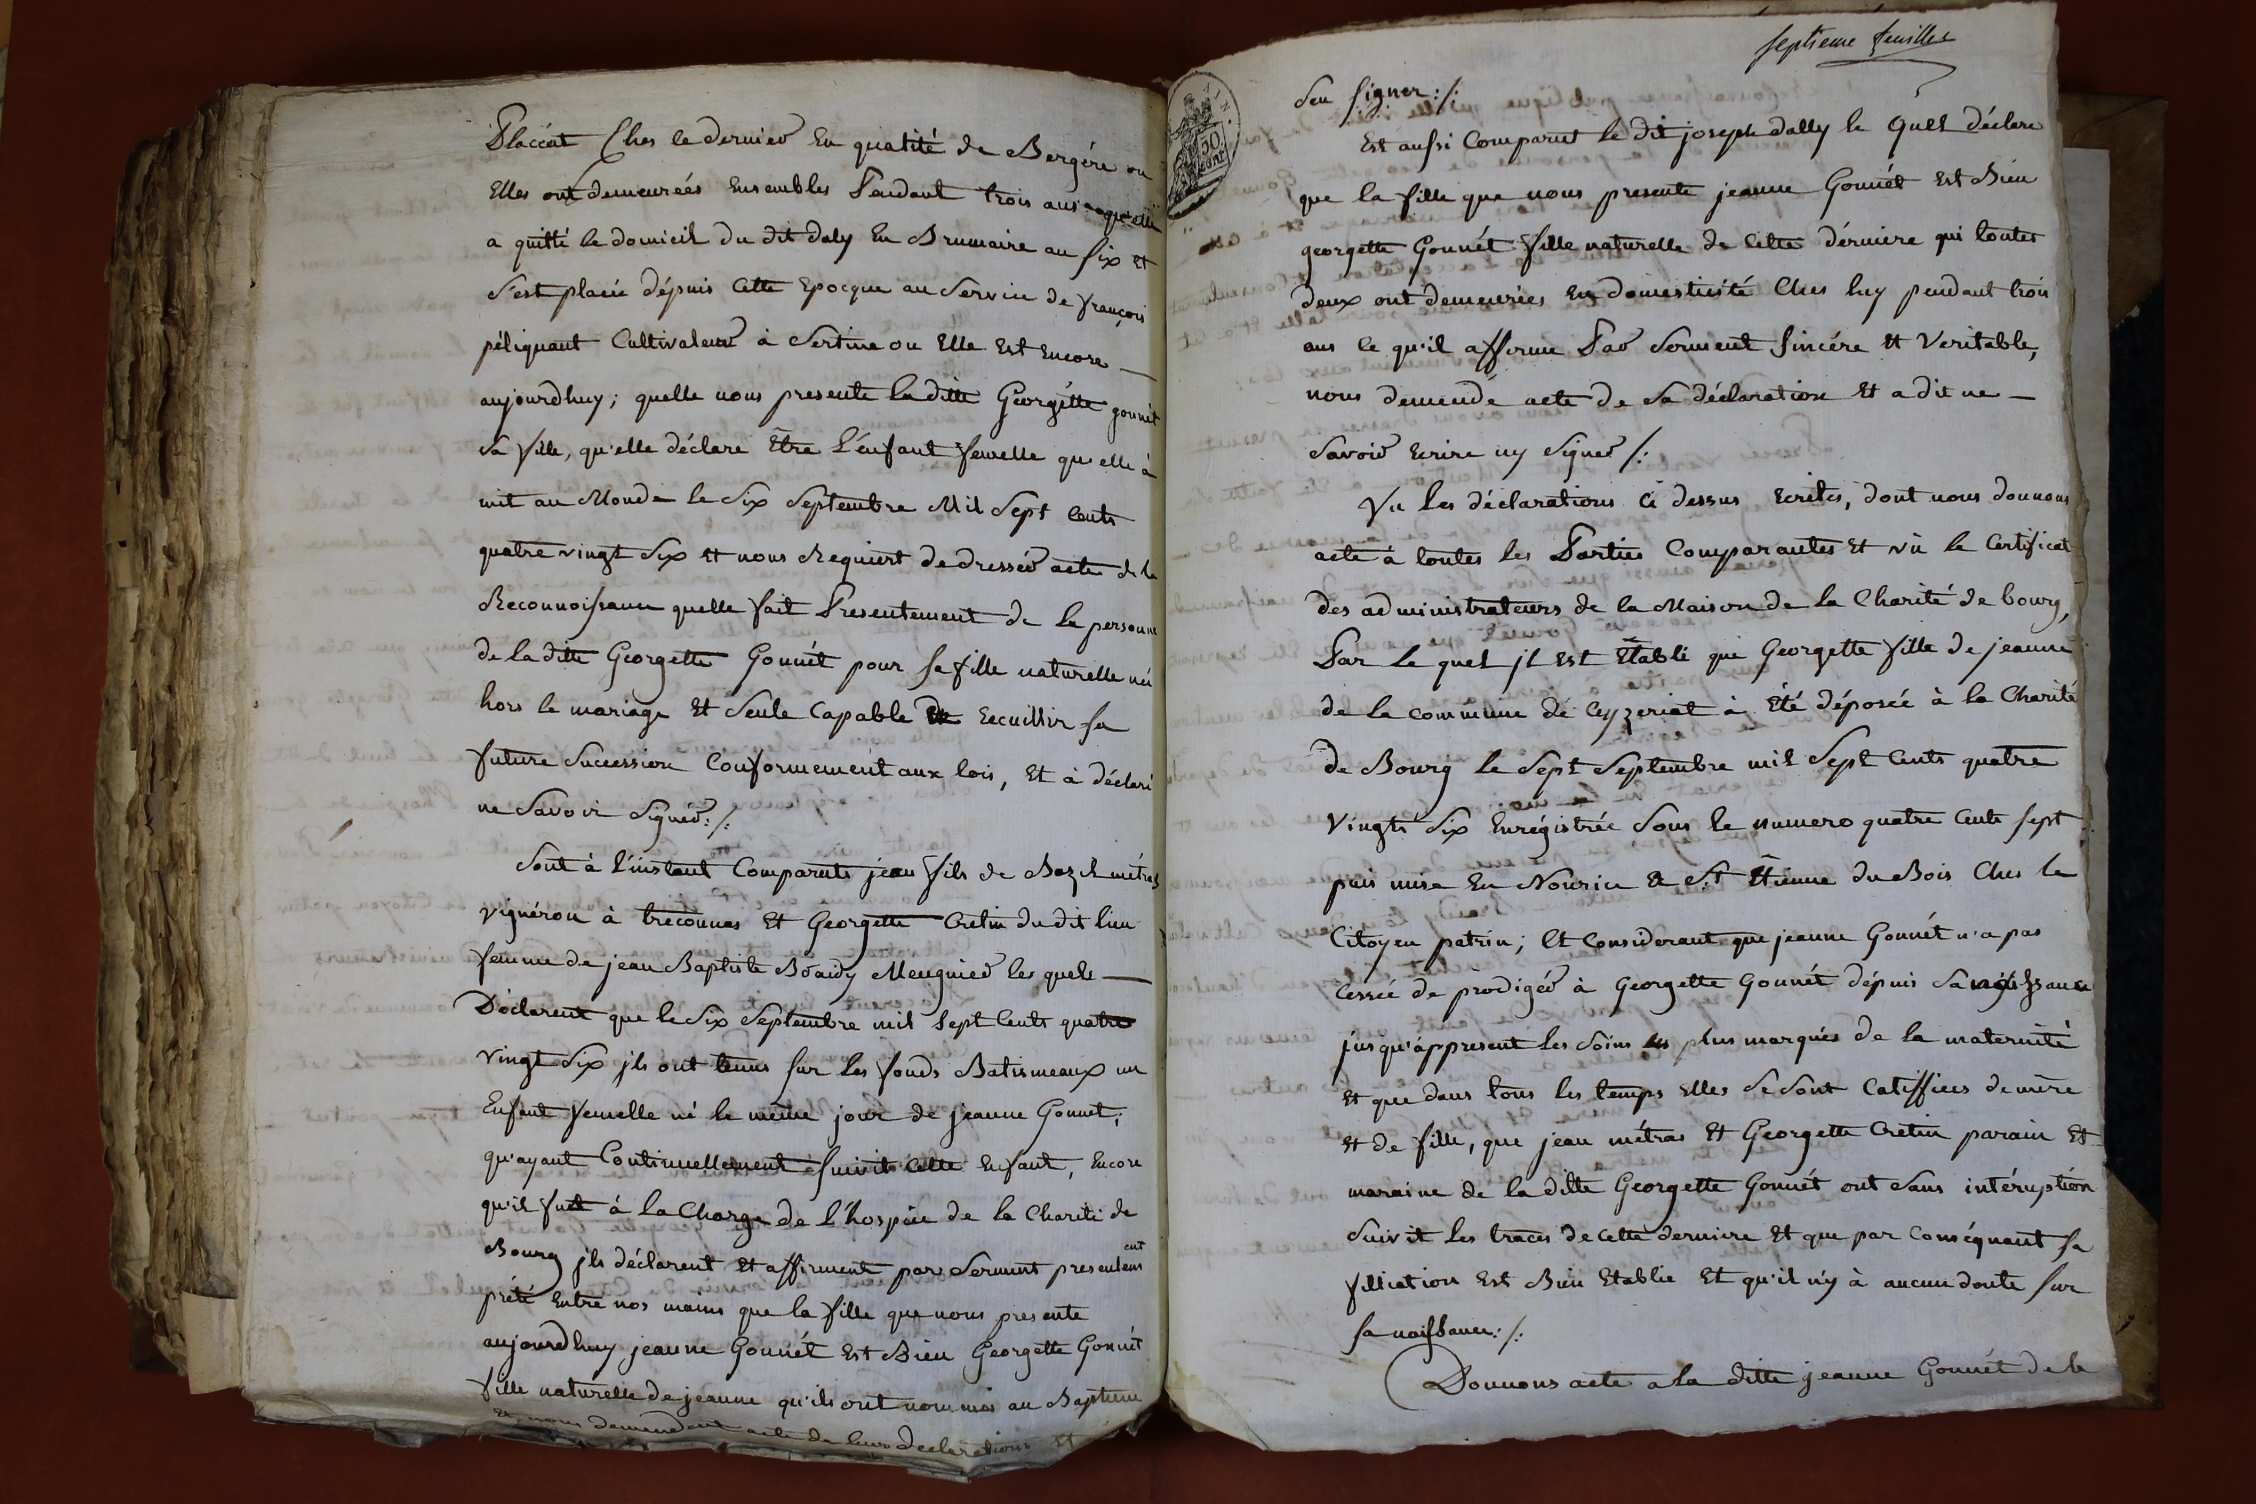 Placéat Ches le dernier En qualité de Bergére ou
Elles ont demeureés Ensembles Pendant trois ans qu'elle
a quitté le domicil du dit daly En Brumaire an six et
s'est placée dépuis Cette Epocque au Service de françois
péliquant Cultivateur à Sertine ou Elle Est Encore —
aujourdhuy; quelle nous presente la ditte Georgétte gonnét
sa fille, qu'elle déclare Être l'énfant femelle qu'elle à
mit au Monde le Six Septembre Mil Sept Cents
quatre vingt Six et nous Requiert de dresser acte de la
Reconnoissance quelle fait Presentement de la personne
de la ditte Georgette Gonnét pour sa fille naturelle née
hors le mariage Et Seule Capable Recuillir sa
future Succession Conformement aux lois, Et à déclaré
ne Savoir Signer :/:
Sont à l'instant Comparuts jean fils de Bazil métras
vignéron à treconnas Et Georgette Cretin du dit lieu
femme de jean Baptiste Boaidy Meugnier les quels —
Déclarent que le Six Septembre mil Sept Cents quatre
vingt Six jls ont tenus sur les fonds Batismeaux un
Enfant femelle né le même jour de jeanne Gonnet;
qu'ayant Continuellement suivit Cette Enfant, Encore
qu'il fut à la Charge de l'hospice de la Charité de
Bourg jls déclarent Et affirment par Serment presentement
prété Entre nos mains que la fille que nous presente
aujourdhuy jeanne Gonnét Est Bien Georgette Gonnét
fille naturelle de jeanne qu'ils ont nommés au Baptême
Et nous demandent acte de leurs declarations Et
septieme feuillet
AIN.
50 cent
Seu signer :/:
Est aussi Comparut le dit joseph dally le quel déclare
que la fille que nous presente jeanne Gonnét Est Bien
georgette Gonnét fille naturelle de Cette dérniere qui toutes
deux ont demeurées En domesticité Ches luy pendant trois
ans ce qu'il afferme Par Serment Sincére Et Veritable,
nous demende acte de Sa déclaration Et a dit ne —
Savoir Ecrire ny Signer /:
Vu les déclarations Ci dessus Ecrites, dont nous donnons
acte à toutes les Parties Comparantes Et vû le Certificat
des administrateurs de la Maison de la Charité de bourg,
Par le quel jl Est Etabli que Georgette fille de jeanne
de la commune de Ceyzeriat à Été déposée à la Charité
de Bourg le Sept Septembre mil Sept Cents quatre
vingts Six Enrégistrée Sous le numero quatre Cents sept
puis mise En Nourice a St Etienne du Bois Ches le
Citoyen patrin; Et Considerant que jeanne Gonnét n'a pas
Cessée de prodiger à Georgette Gonnét dépuis Sa naissance
jusqu'appresent les Soins les plus marqués de la maternité
Et que dans tous les temps Elles Se Sont Catiffiees de mère
Et de fille, que jean métras Et Georgette Cretin parain Et
maraine de la ditte Georgette Gonnét ont Sans intéruption
Suivit les traces de Cette derniere Et que par Conséquant sa
filliation Est Bien Etablie Et qu'il n'y à aucun doute sur
sa naissance :/:
Donnons acte a la ditte jeanne Gonnét de la